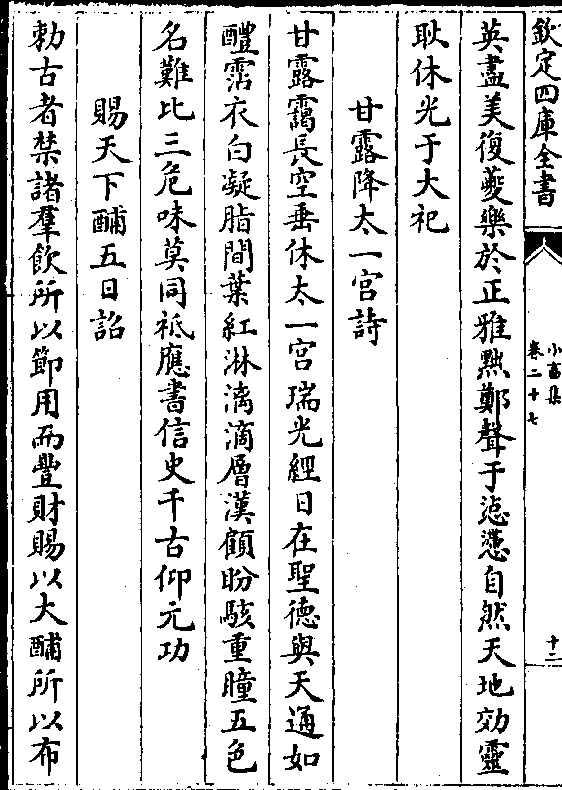 欽定四庫全書
小畜集
卷二十七
十二
英盡美復夔樂於正雅㸃鄭聲于惉懘自然天地効靈
耿休光于大祀
甘露降太一宫詩
甘露靄長空垂休太一宫瑞光經日在聖德與天通如
醴霑衣白凝脂間葉紅淋漓滴層漢顧盼駭重瞳五色
名難比三危味莫同祗應書信史千古仰元功
賜天下酺五日詔
勅古者禁諸羣飲所以節用而豐財賜以大酺所以布